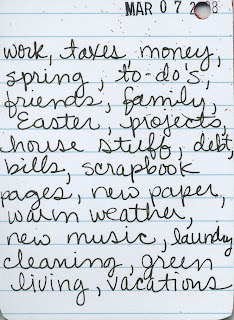 MAR 07 2
work, taxes, money,
spring, to-do's,
friends, family,
Easter, projects,
house stuff, debt,
bills, scrapbook
pages, new paper,
warm weather,
new music, laundry
cleaning, green
living, vacations